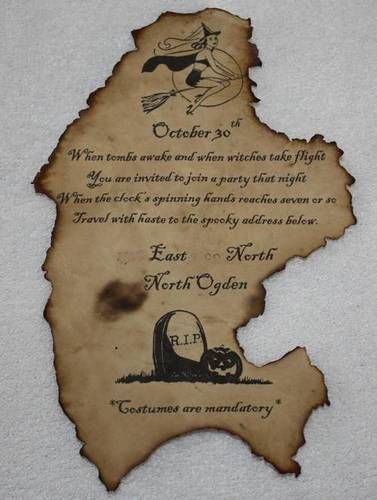 October 30th
When tombs awake and when witches take flight
You are invited to join a party that night
When the clock's spinning hands reaches seven or so
Travel with haste to the spooky address below.
East North
North Ogden
R.I.P
*Costumes are mandatory*